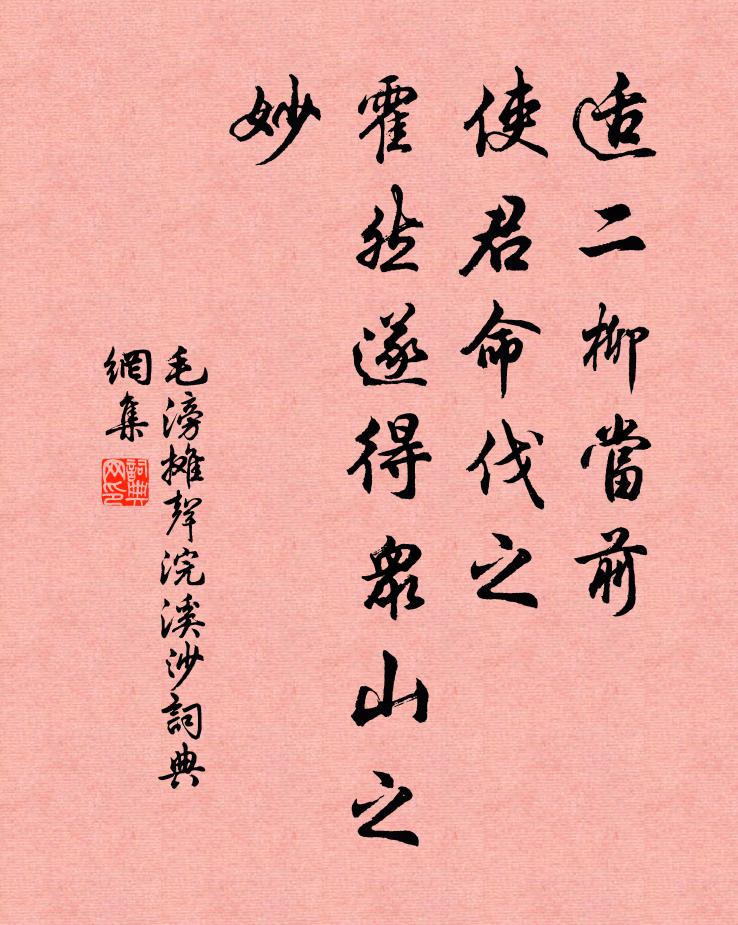 适二柳當前
使君命伐之
霍然遂得衆山之
妙
毛滂攤聲浣溪沙詞典
網集
詞典
网印